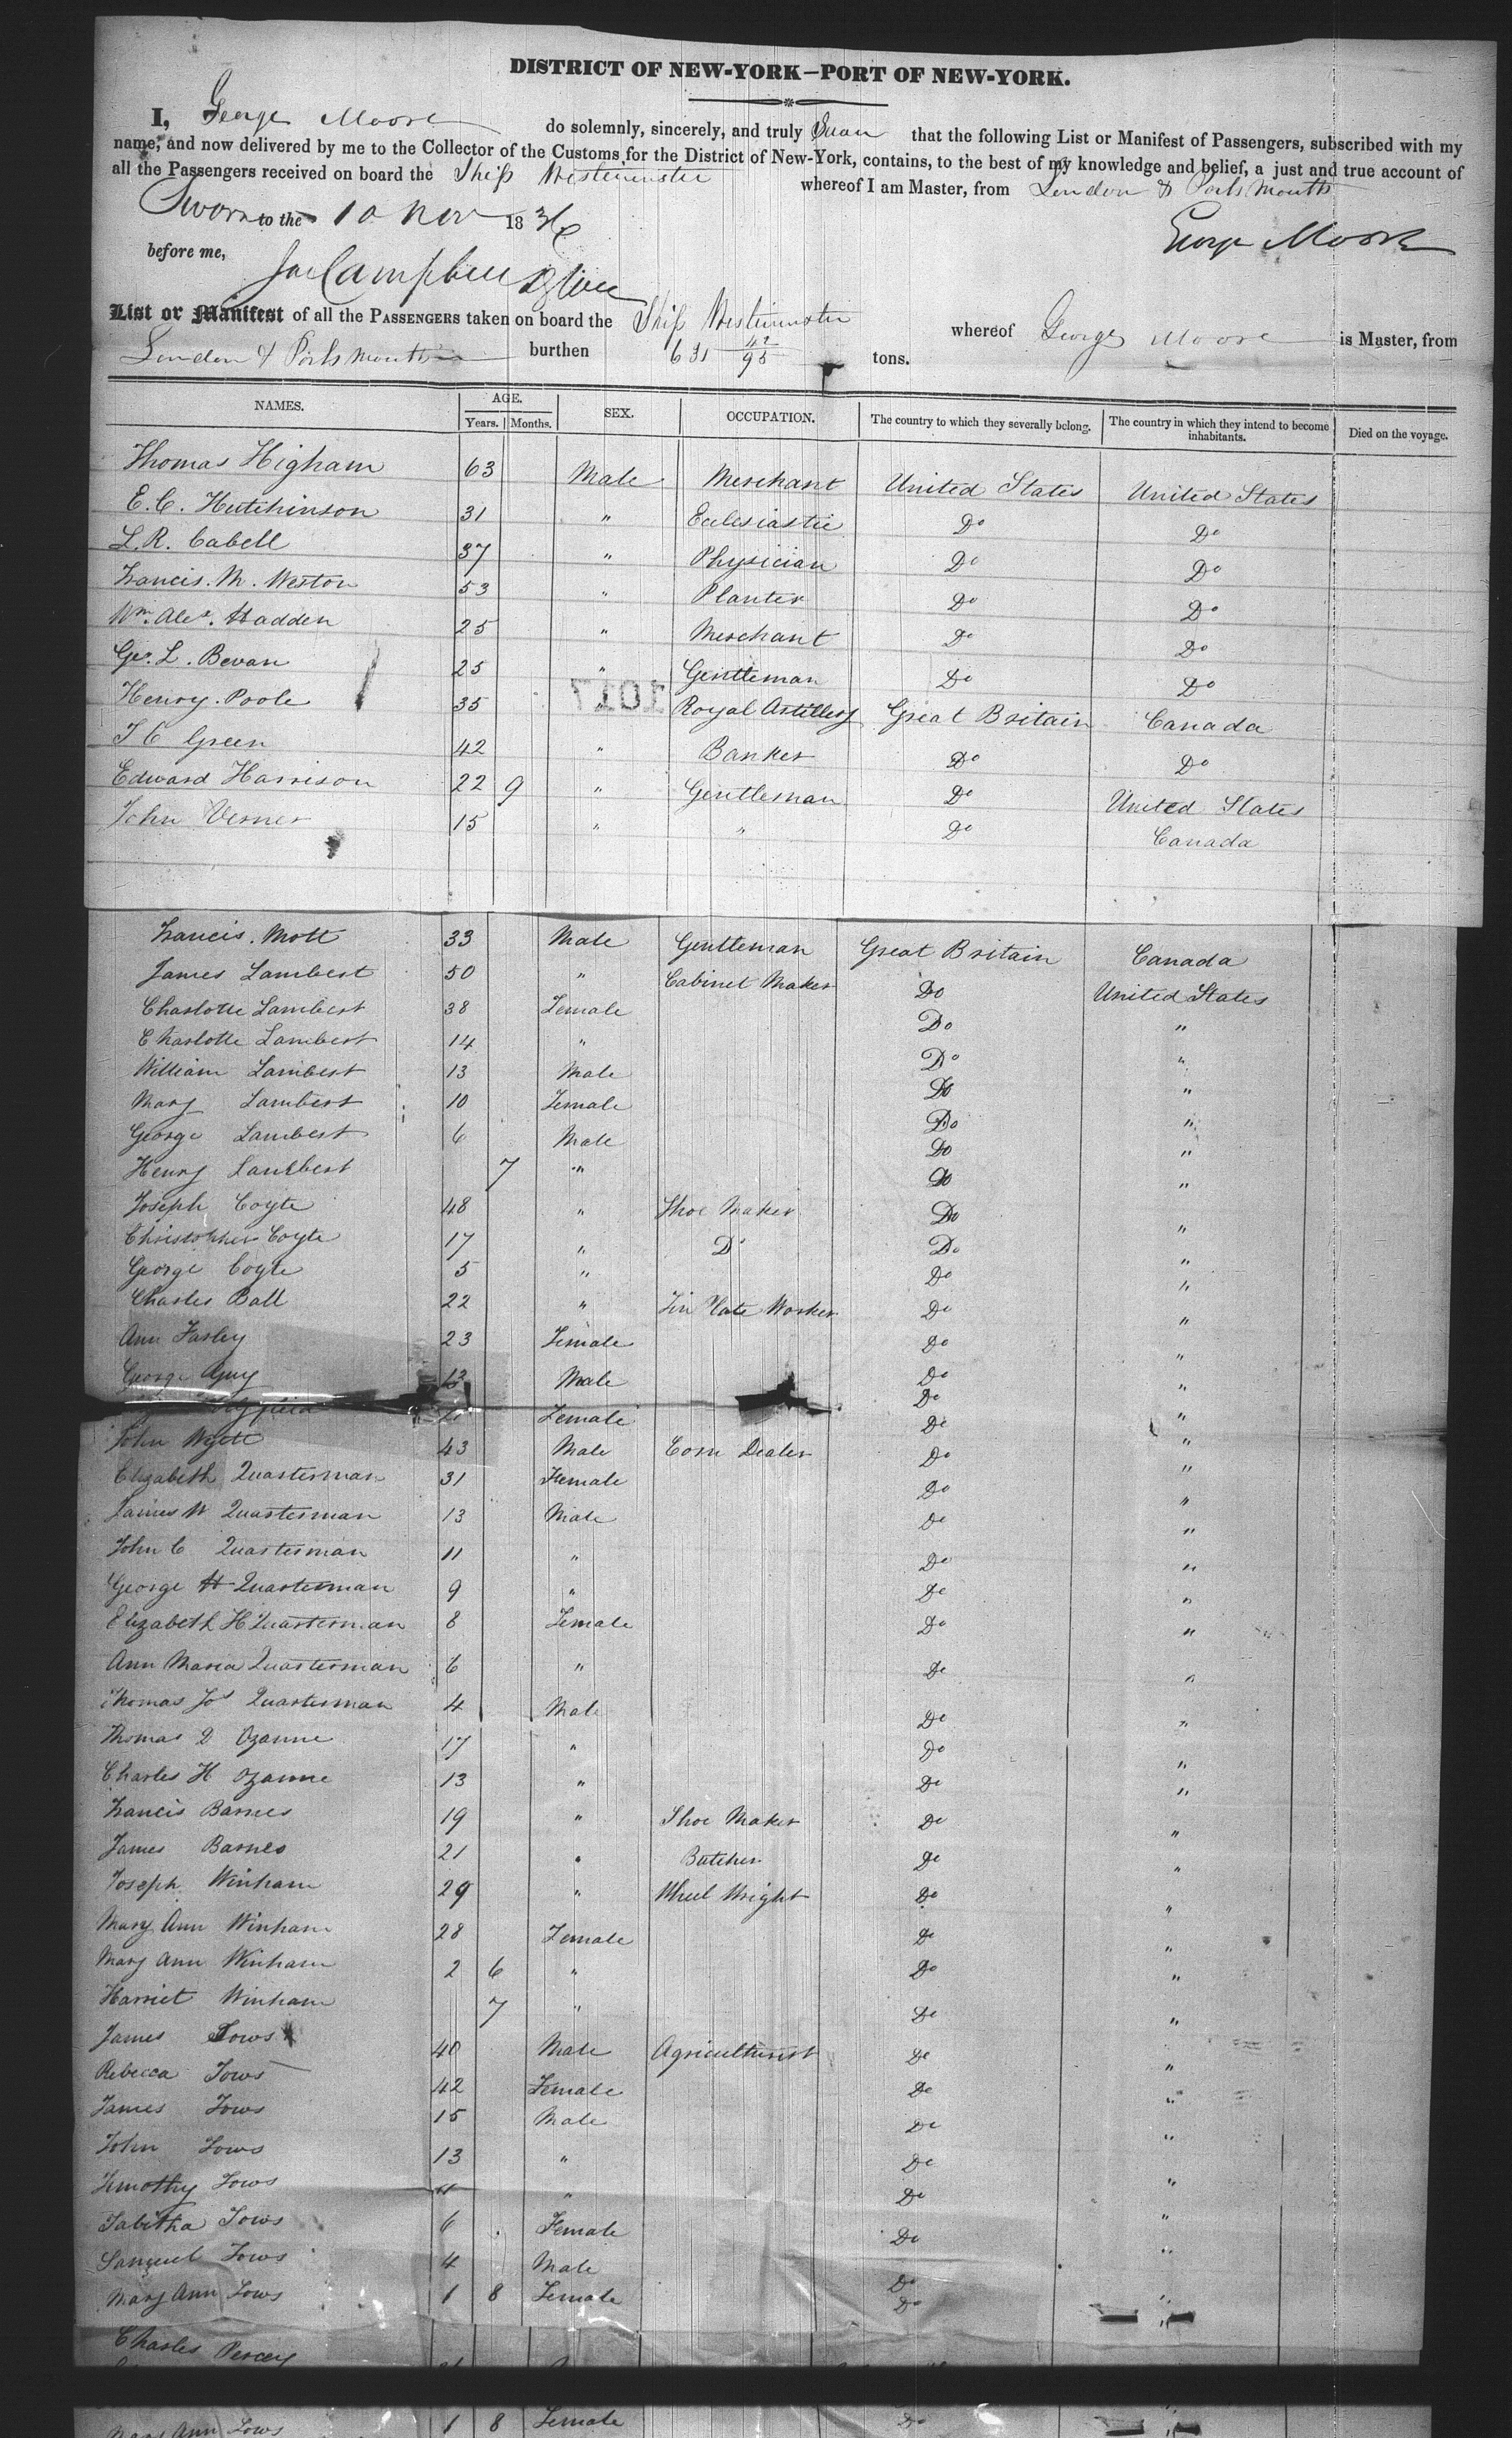 DISTRICT OF NEW-YORK—PORT OF NEW-YORK.
I, George Moore do solemnly, sincerely, and truly Swear that the following List or Manifest of Passengers, subscribed with my
name, and now delivered by me to the Collector of the Customs for the District of New-York, contains, to the best of my knowledge and belief, a just and true account of
all the Passengers received on board the Ship Westminster whereof I am Master, from London & Portsmouth
Sworn to the 10 Nov 1836
George Moore
before me,
Campbell
List or Manifest of all the PASSENGERS taken on board the Ship Westminster whereof George Moore is Master, from
London & Portsmouth burthen 631 42/95 tons.
NAMES. AGE. SEX. OCCUPATION. The country to which they severally belong. The country in which they intend to become inhabitants. Died on the voyage.
Years. Months.
Thomas Higham 63 Male Merchant United States United States
E. C. Hutchinson 31 " Ecclesiastic Do Do
L. R. Cabell 37 " Physician Do Do
Francis. M. Weston 53 " Planter Do Do
Wm. Alex. Hadden 25 " Merchant Do Do
Geo. L. Bevan 25 " Gentleman Do Do
1017
Henry. Poole 35 Royal Artillery Great Britain Canada
T C Green 42 " Banker Do Do
Edward Harrison 22 9 " Gentleman Do United States
John Verner 15 " " Do Canada
Francis. Mott 33 Male Gentleman Great Britain Canada
James Lambert 50 " Cabinet Maker Do United States
Charlotte Lambert 38 Female Do "
Charlotte Lambert 14 " Do "
William Lambert 13 Male Do "
Mary Lambert 10 Female Do "
George Lambert 6 Male Do "
Henry Lambert 7 " Do "
Joseph Coyte 48 " Shoe Maker Do "
Christopher Coyte 17 " Do Do "
George Coyte 5 " Do "
Charles Ball 22 " Tin Plate Worker Do "
Ann Farley 23 Female Do "
George Guy 13 Male Do "
Female Do "
John Wyett 43 Male Corn Dealer Do "
Elizabeth Quarterman 31 Female Do "
James W Quarterman 13 Male Do "
John C Quarterman 11 " Do "
George H Quarterman 9 " Do "
Elizabeth H Quarterman 8 Female Do "
Ann Maria Quarterman 6 " Do "
Thomas Jos Quarterman 4 Male Do "
Thomas D Ozanne 17 " Do "
Charles H Ozanne 13 " Do "
Francis Barnes 19 " Shoe Maker Do "
James Barnes 21 " Butcher Do "
Joseph Winham 29 " Wheel Wright Do "
Mary Ann Winham 28 Female Do "
Mary Ann Winham 2 6 " Do "
Harriet Winham 7 " Do "
James Tows 40 Male Agriculturist Do "
Rebecca Tows 42 Female Do "
James Tows 15 Male Do "
John Tows 13 " Do "
Timothy Tows 11 " Do "
Tabitha Tows 6 Female Do "
Samuel Tows 4 Male Do "
Mary Ann Tows 1 8 Female Do "
Charles Percey
Mary Ann Tows 1 8 Female Do "